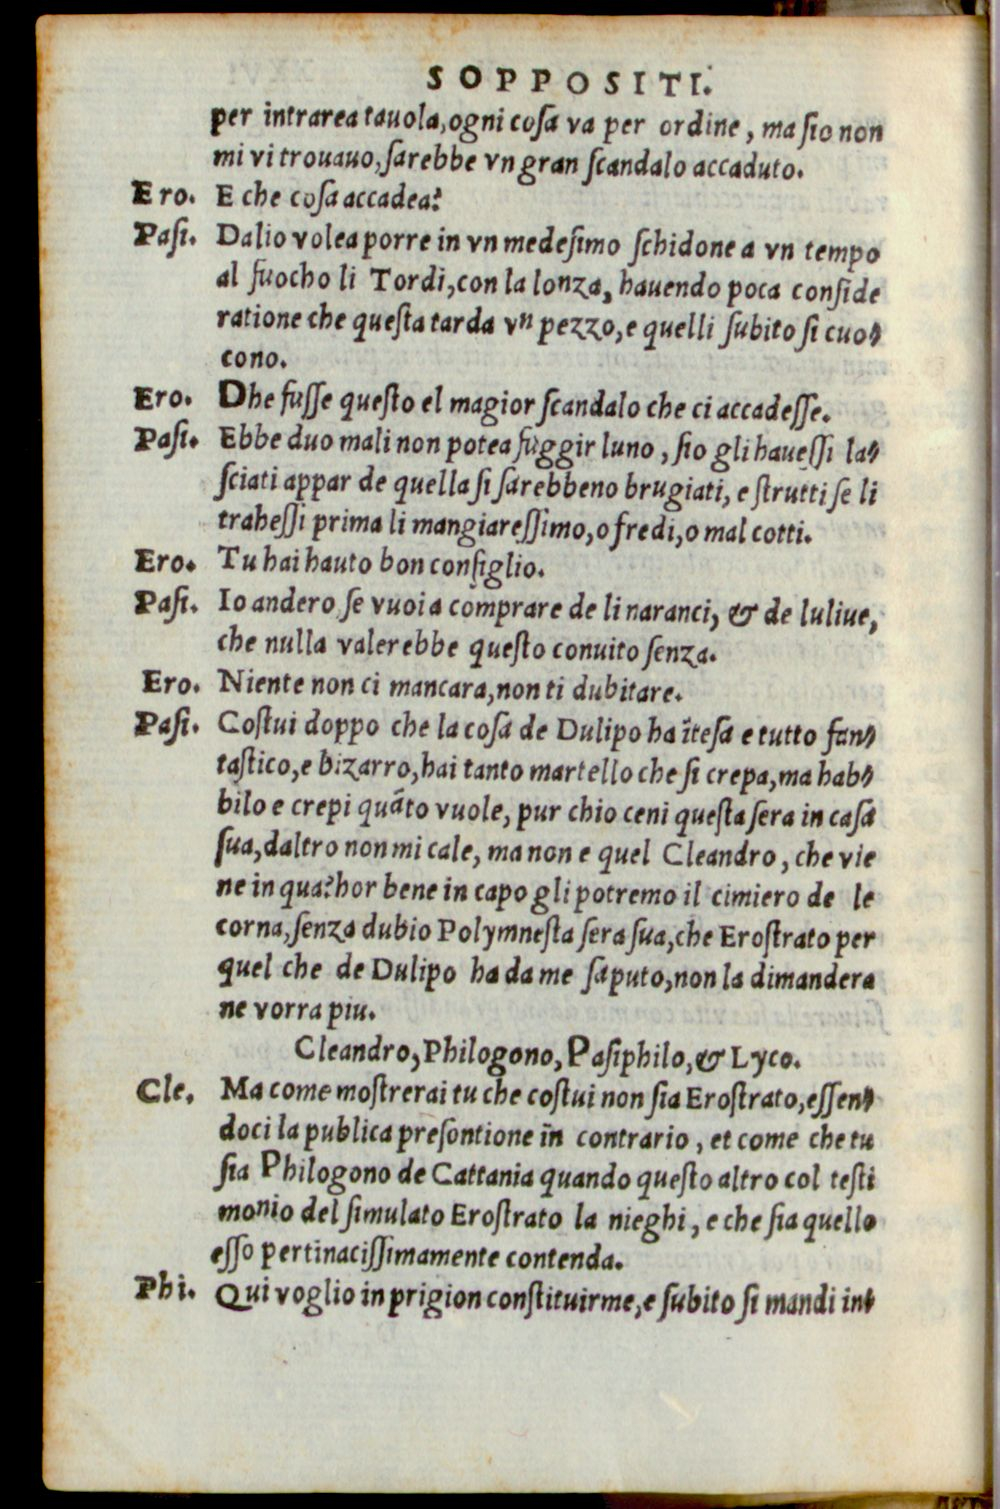 SOPPOSITI.
per intrarea tauola,ogni coſa va per ordine, ma ſio non
mi vi trouauo,ſarebbe vn gran ſcandalo accaduto.
Ero. E che coſa accadea?
Paſi. Dalio volea porre in vn medeſimo ſchidone a vn tempo
al fuocho li Tordi,con la lonza, hauendo poca conſide
ratione che queſta tarda vn pezzo,e quelli ſubito ſi cuo-
cono.
Ero. Dhe fuſſe queſto el magior ſcandalo che ci accadeſſe.
Paſi. Ebbe duo mali non potea fuggir luno, ſio gli haueſſi la-
ſciati appar de quella ſi ſarebbeno brugiati, e ſtrutti ſe li
traheſſi prima li mangiareſſimo,o fredi,o mal cotti.
Ero. Tu hai hauto bon conſiglio.
Paſi. Io andero ſe vuoi a comprare de li naranci, & de luliue,
che nulla valerebbe queſto conuito ſenza.
Ero. Niente non ci mancara,non ti dubitare.
Paſi. Coſtui doppo che la coſa de Dulipo ha īteſa e tutto fan-
taſtico,e bizarro,hai tanto martello che ſi crepa,ma hab-
bilo e crepi quāto vuole, pur chio ceni queſta ſera in caſa
ſua,daltro non mi cale, ma non e quel Cleandro, che vie
ne in qua?hor bene in capo gli potremo il cimiero de le
corna,ſenza dubio Polymneſta ſera ſua,che Eroſtrato per
quel che de Dulipo ha da me ſaputo,non la dimandera
ne vorra piu.
Cleandro, Philogono, Paſiphilo, & Lyco.
Cle. Ma come moſtrerai tu che coſtui non ſia Eroſtrato,eſſen-
doci la publica preſontione īn contrario, et come che tu
ſia Philogono de Cattania quando queſto altro col teſti
monio del ſimulato Eroſtrato la nieghi, e che ſia quello
eſſo pertinaciſſimamente contenda.
Phi. Qui voglio in prigion conſtituirme,e ſubito ſi mandi in-